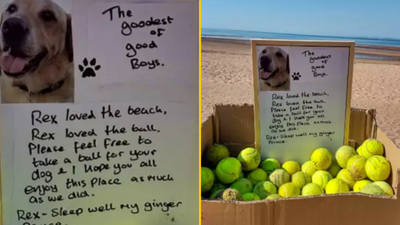 The
goodest
of
good
Boys.
Rex loved the beach,
Rex loved the ball.
Please feel free to
take a ball for your
dog & I hope you all
enjoy this place as much
as we did.
Rex - Sleep well my ginger
Prince.
The
goodest
of
good
Boys.
Rex loved the beach,
Rex loved the ball.
Please feel free to
take a ball for your
dog & I hope you all
enjoy this place as much
as we did.
Rex - Sleep well my ginger